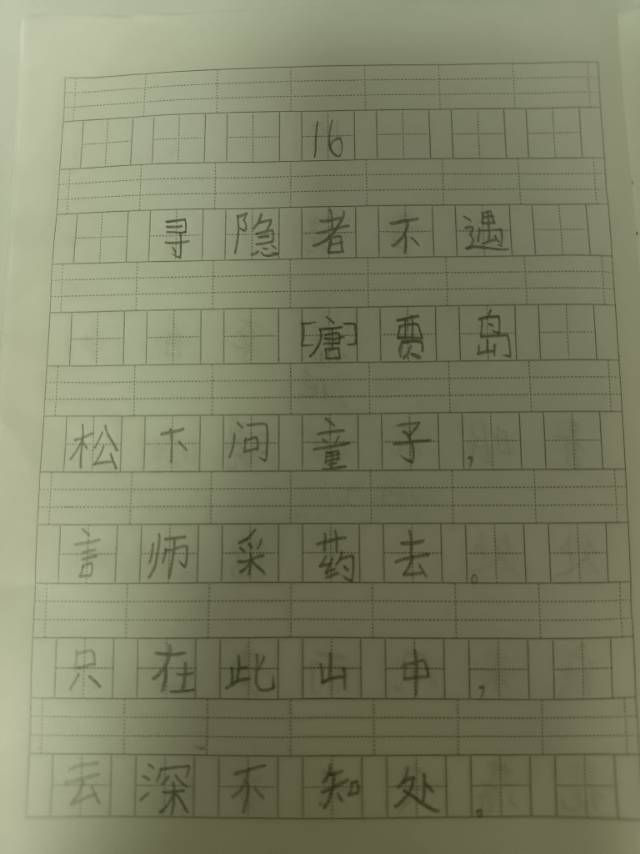 16
寻隐者不遇
[唐]贾岛
松下问童子,
言师采药去。
只在此山中,
云深不知处。